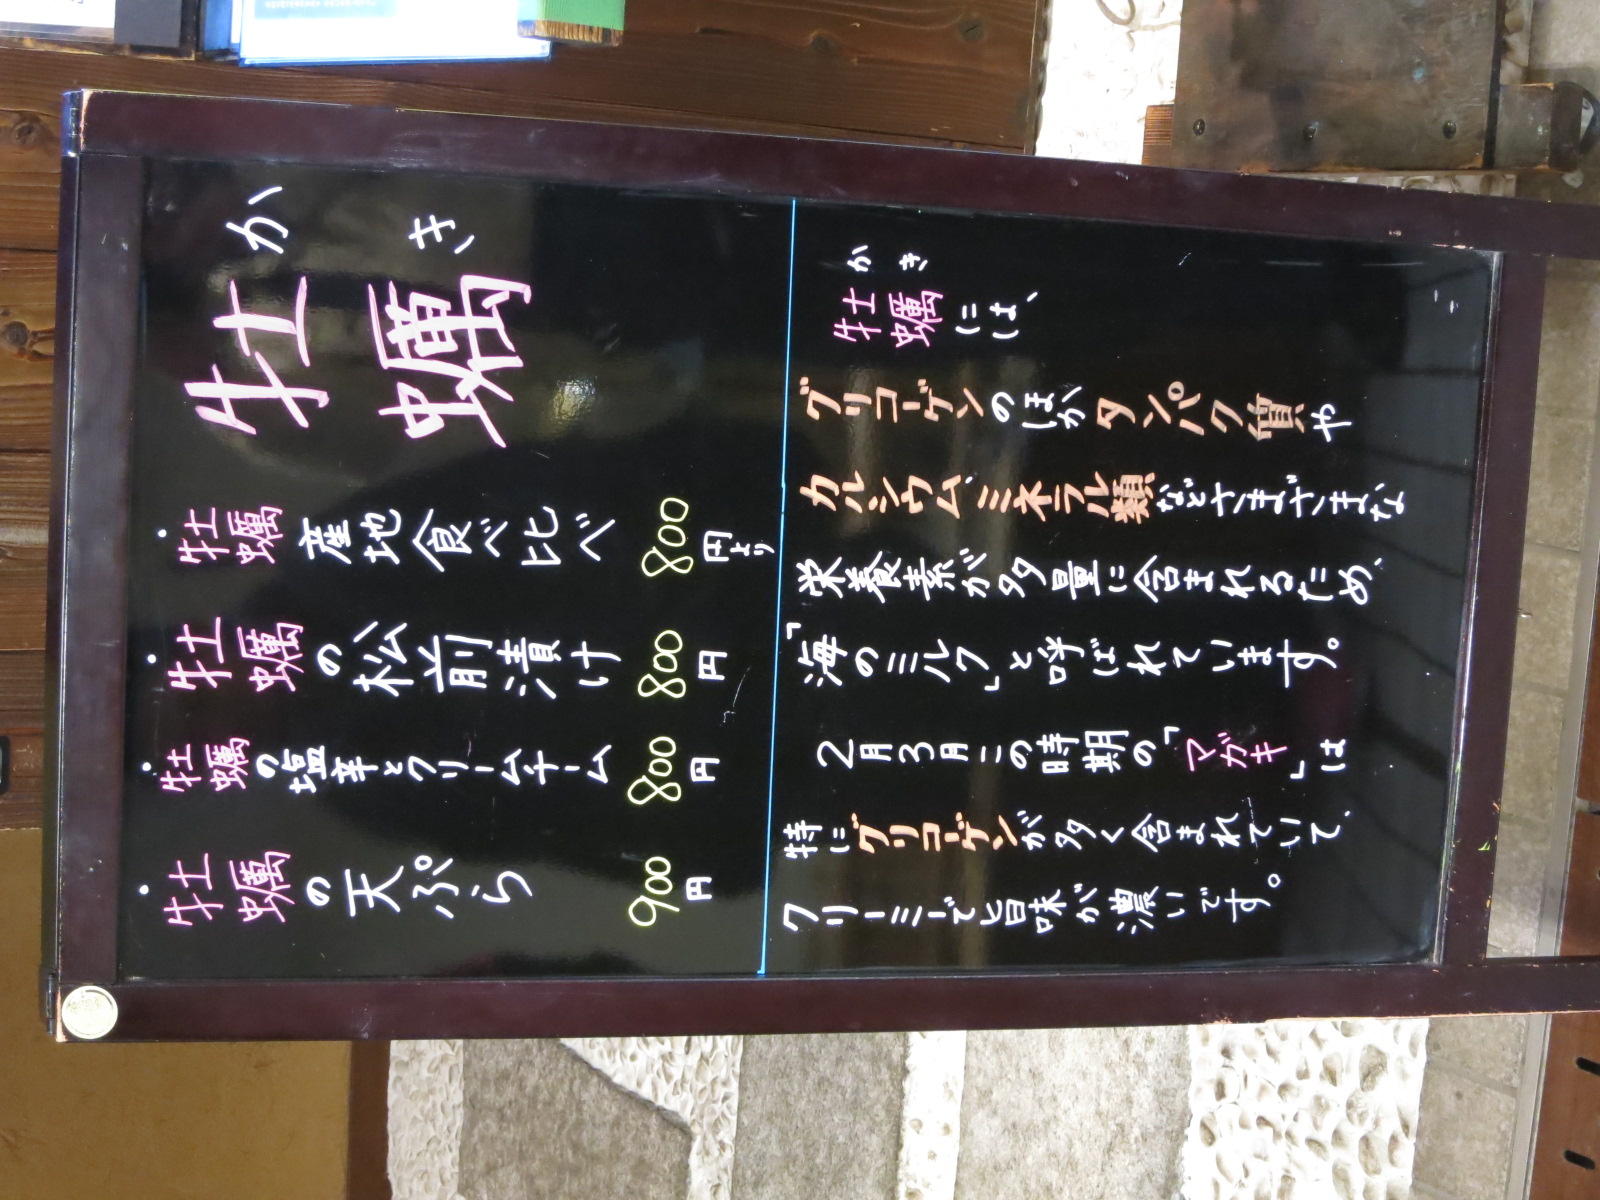 かき
牡蠣
・牡蠣産地食べ比べ 800円より
・牡蠣の松前漬け 800円
・牡蠣の塩辛とクリームチーム 800円
・牡蠣の天ぷら 900円
かき
牡蠣には、
グリコーゲンのほかタンパク質や
カルシウム、ミネラル類などさまざまな
栄養素が多量に含まれるため、
「海のミルク」と呼ばれています。
2月3月この時期の「マガキ」は
特にグリコーゲンが多く含まれていて、
クリーミーで旨味が濃いです。